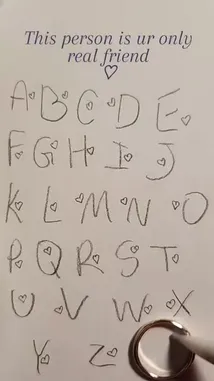 This person is ur only
real friend
A B C D E
F G H I J
K L M N O
P Q R S T
U V W X
Y Z